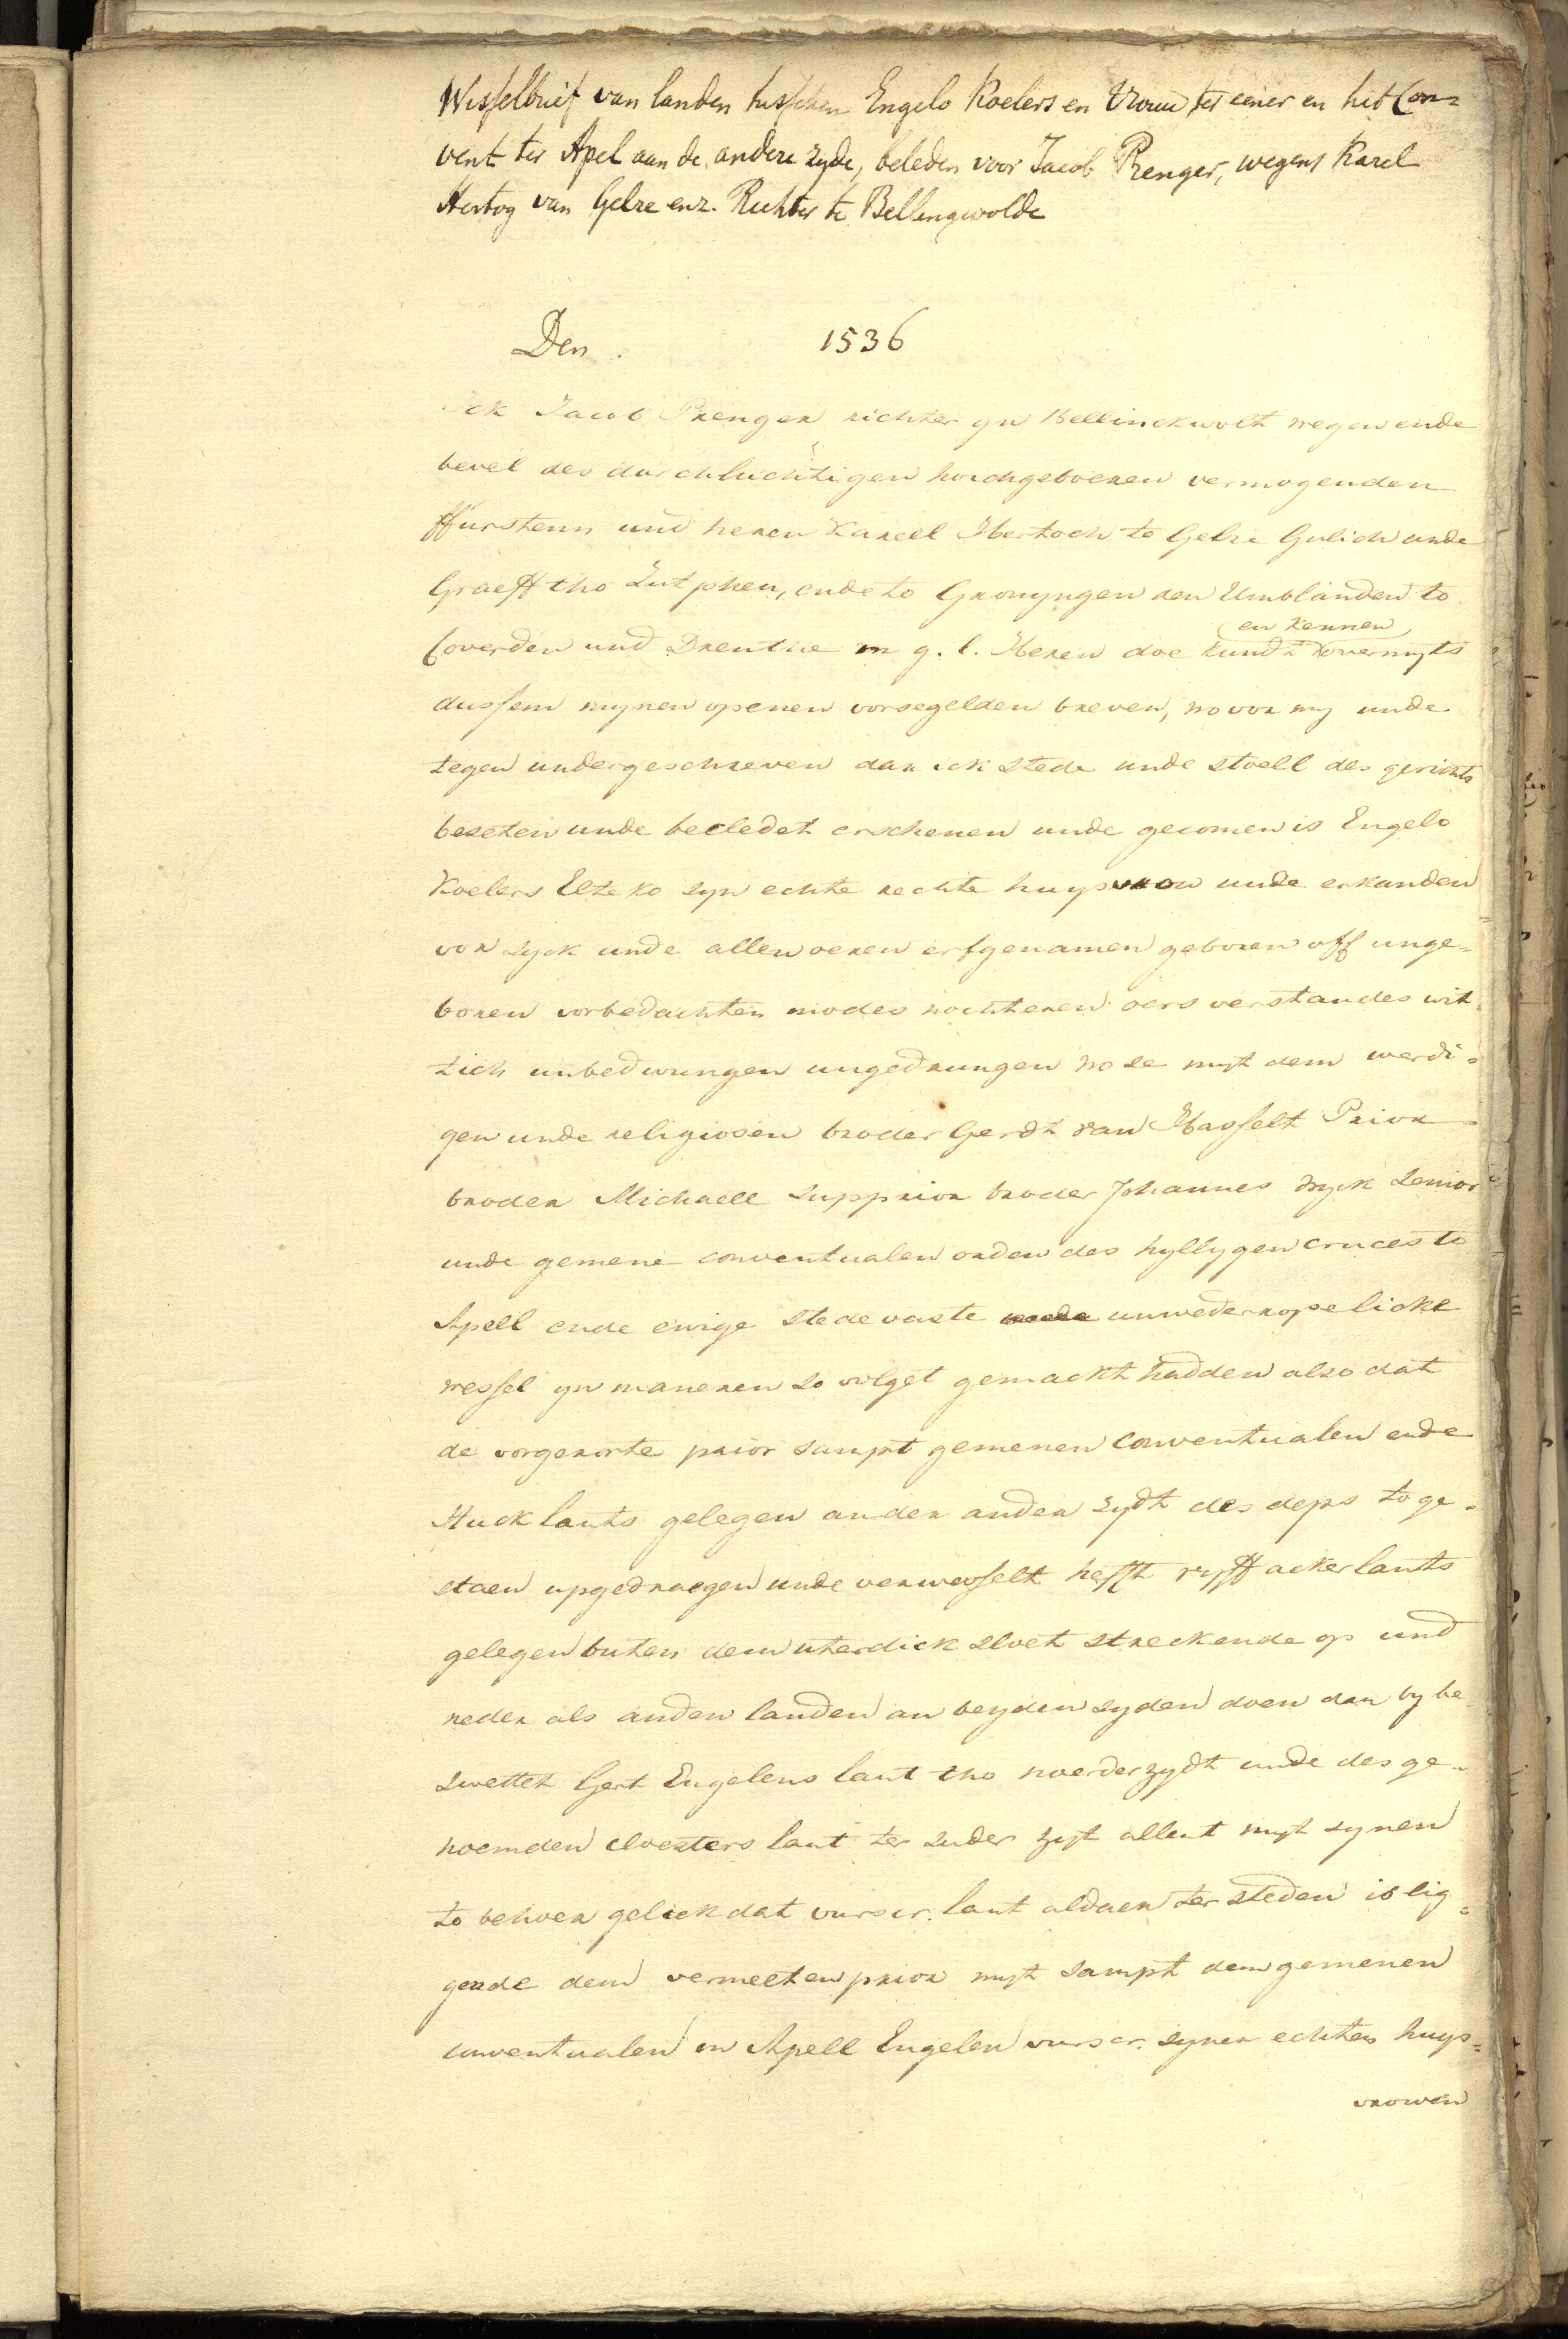 Wisselbrief van landen tusschen Engelo Koelers en Vrouw ter eener en het Con=
vent ter Apel aan de andere zyde, beleden voor Jacob Prenger, wegens Karel
Hertog van Gelre enz. Richter te Bellingwolde
Den 1536
Ick Jacob Prenger richter yn Bellinckwolt wegen ende
bevel des durchluchtigen hoichgeboeren vermogenden
ffurstenn und heren Kareel Hertoch to Gelre Gulich unde
Graeff tho Zutphen, ende to Gronyngen den Umblanden to
en kennen
Coverden und Drenthe m g. l. Heren doe kundt overmyts
dussem mynen openen vorsegelden breven, wo vor my unde
tegen undergeschreven dar ick stede unde stoell des gerichts
beseten unde becledet erschenen unde gecomen is Engelo
Koelers Elteko syn echte rechte huysvrow unde erkanden
vor syck unde allen oeren erfgenamen geboren off unge=
boren vorbedachten modes nochteren oers verstandes wit
lich unbedwungen ungedrungen wo se myt dem werdi=
gen unde religiosen broder Gerdt van Hasselt Prior
broder Michaell supprior broder Johannes Dyck Senior
unde gemene conventualen orden des hyllygen cruces to
Apell ende ewige stedevaste unwederropelicke
wessel yn maneren so volget gemackt hadden also dat
de vorgerorte prior sampt gemenen conventualen ende
stuck lants gelegen an der ander zydt des deps to ge=
staen upgedraegen unde verwesselt hefft vyff ackerlants
gelegen buten dem uterdick sloet streckende op und
neder als anden landen an beyden syden doen dar by be
swettet Gert Engelens lant tho noerderzydt unde des ge=
noemden cloesters lant ter suder zyt allent myt synen
to behoer gelick dat vurscr. lant aldaer ter steden is lig=
gende dem vermeeten prior myt sampt dem gemenen
conventualen in Apell Engelen vurscr. syner echten huys=
vrowen